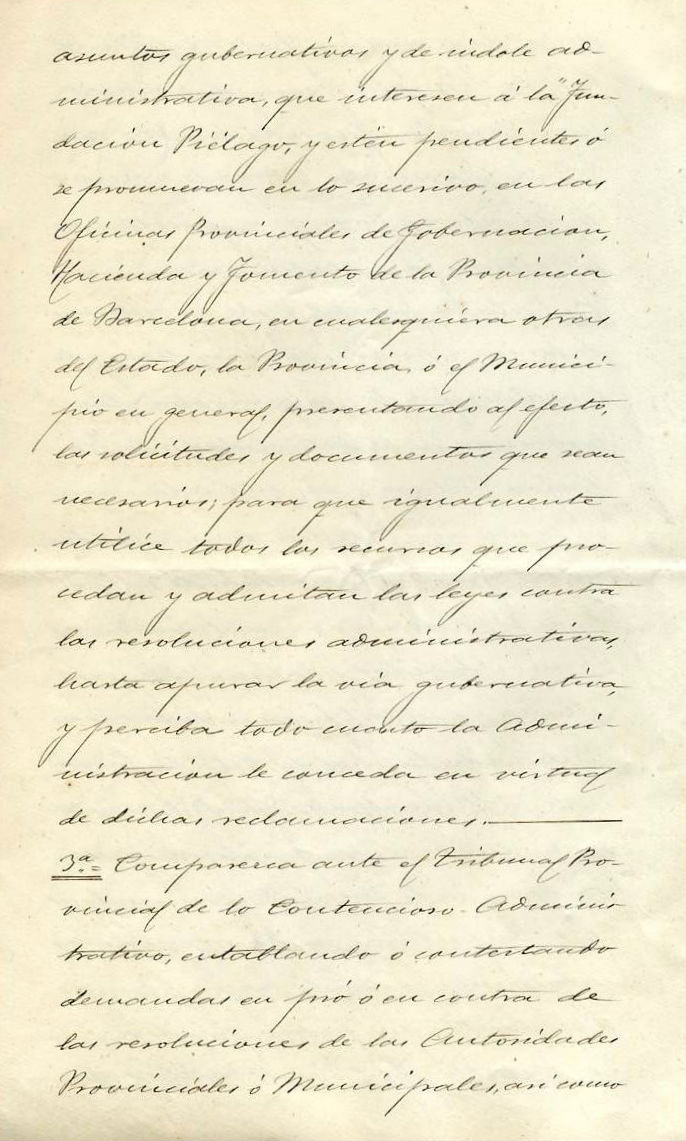 asuntos gubernativos y de indole ad-
ministrativa, que interesen á la "Fun-
dación Piélago, y estén pendientes ó
se promuevan en lo sucesivo, en las
Oficinas Provinciales de Gobernacion,
Hacienda y Fomento de la Provincia
de Barcelona, en cualesquiera otras
del Estado, la Provincia, ó el Munici-
pio en general, presentando al efecto,
las solicitudes y documentos que sean
necesarios; para que igualmente
utilice todos los recursos que pro-
cedan y admitan las leyes contra
las resoluciones administrativas,
hasta apurar la via gubernativa,
y perciba todo cuanto la Admi-
nistracion le conceda en virtud
de dichas reclamaciones.
3ª.= Comparezca ante el Tribunal Pro-
vincial de lo Contencioso-Adminis-
trativo, entablando ó contestando
demandas en pró ó en contra de
las resoluciones de las Autoridades
Provinciales ó Municipales, asi como